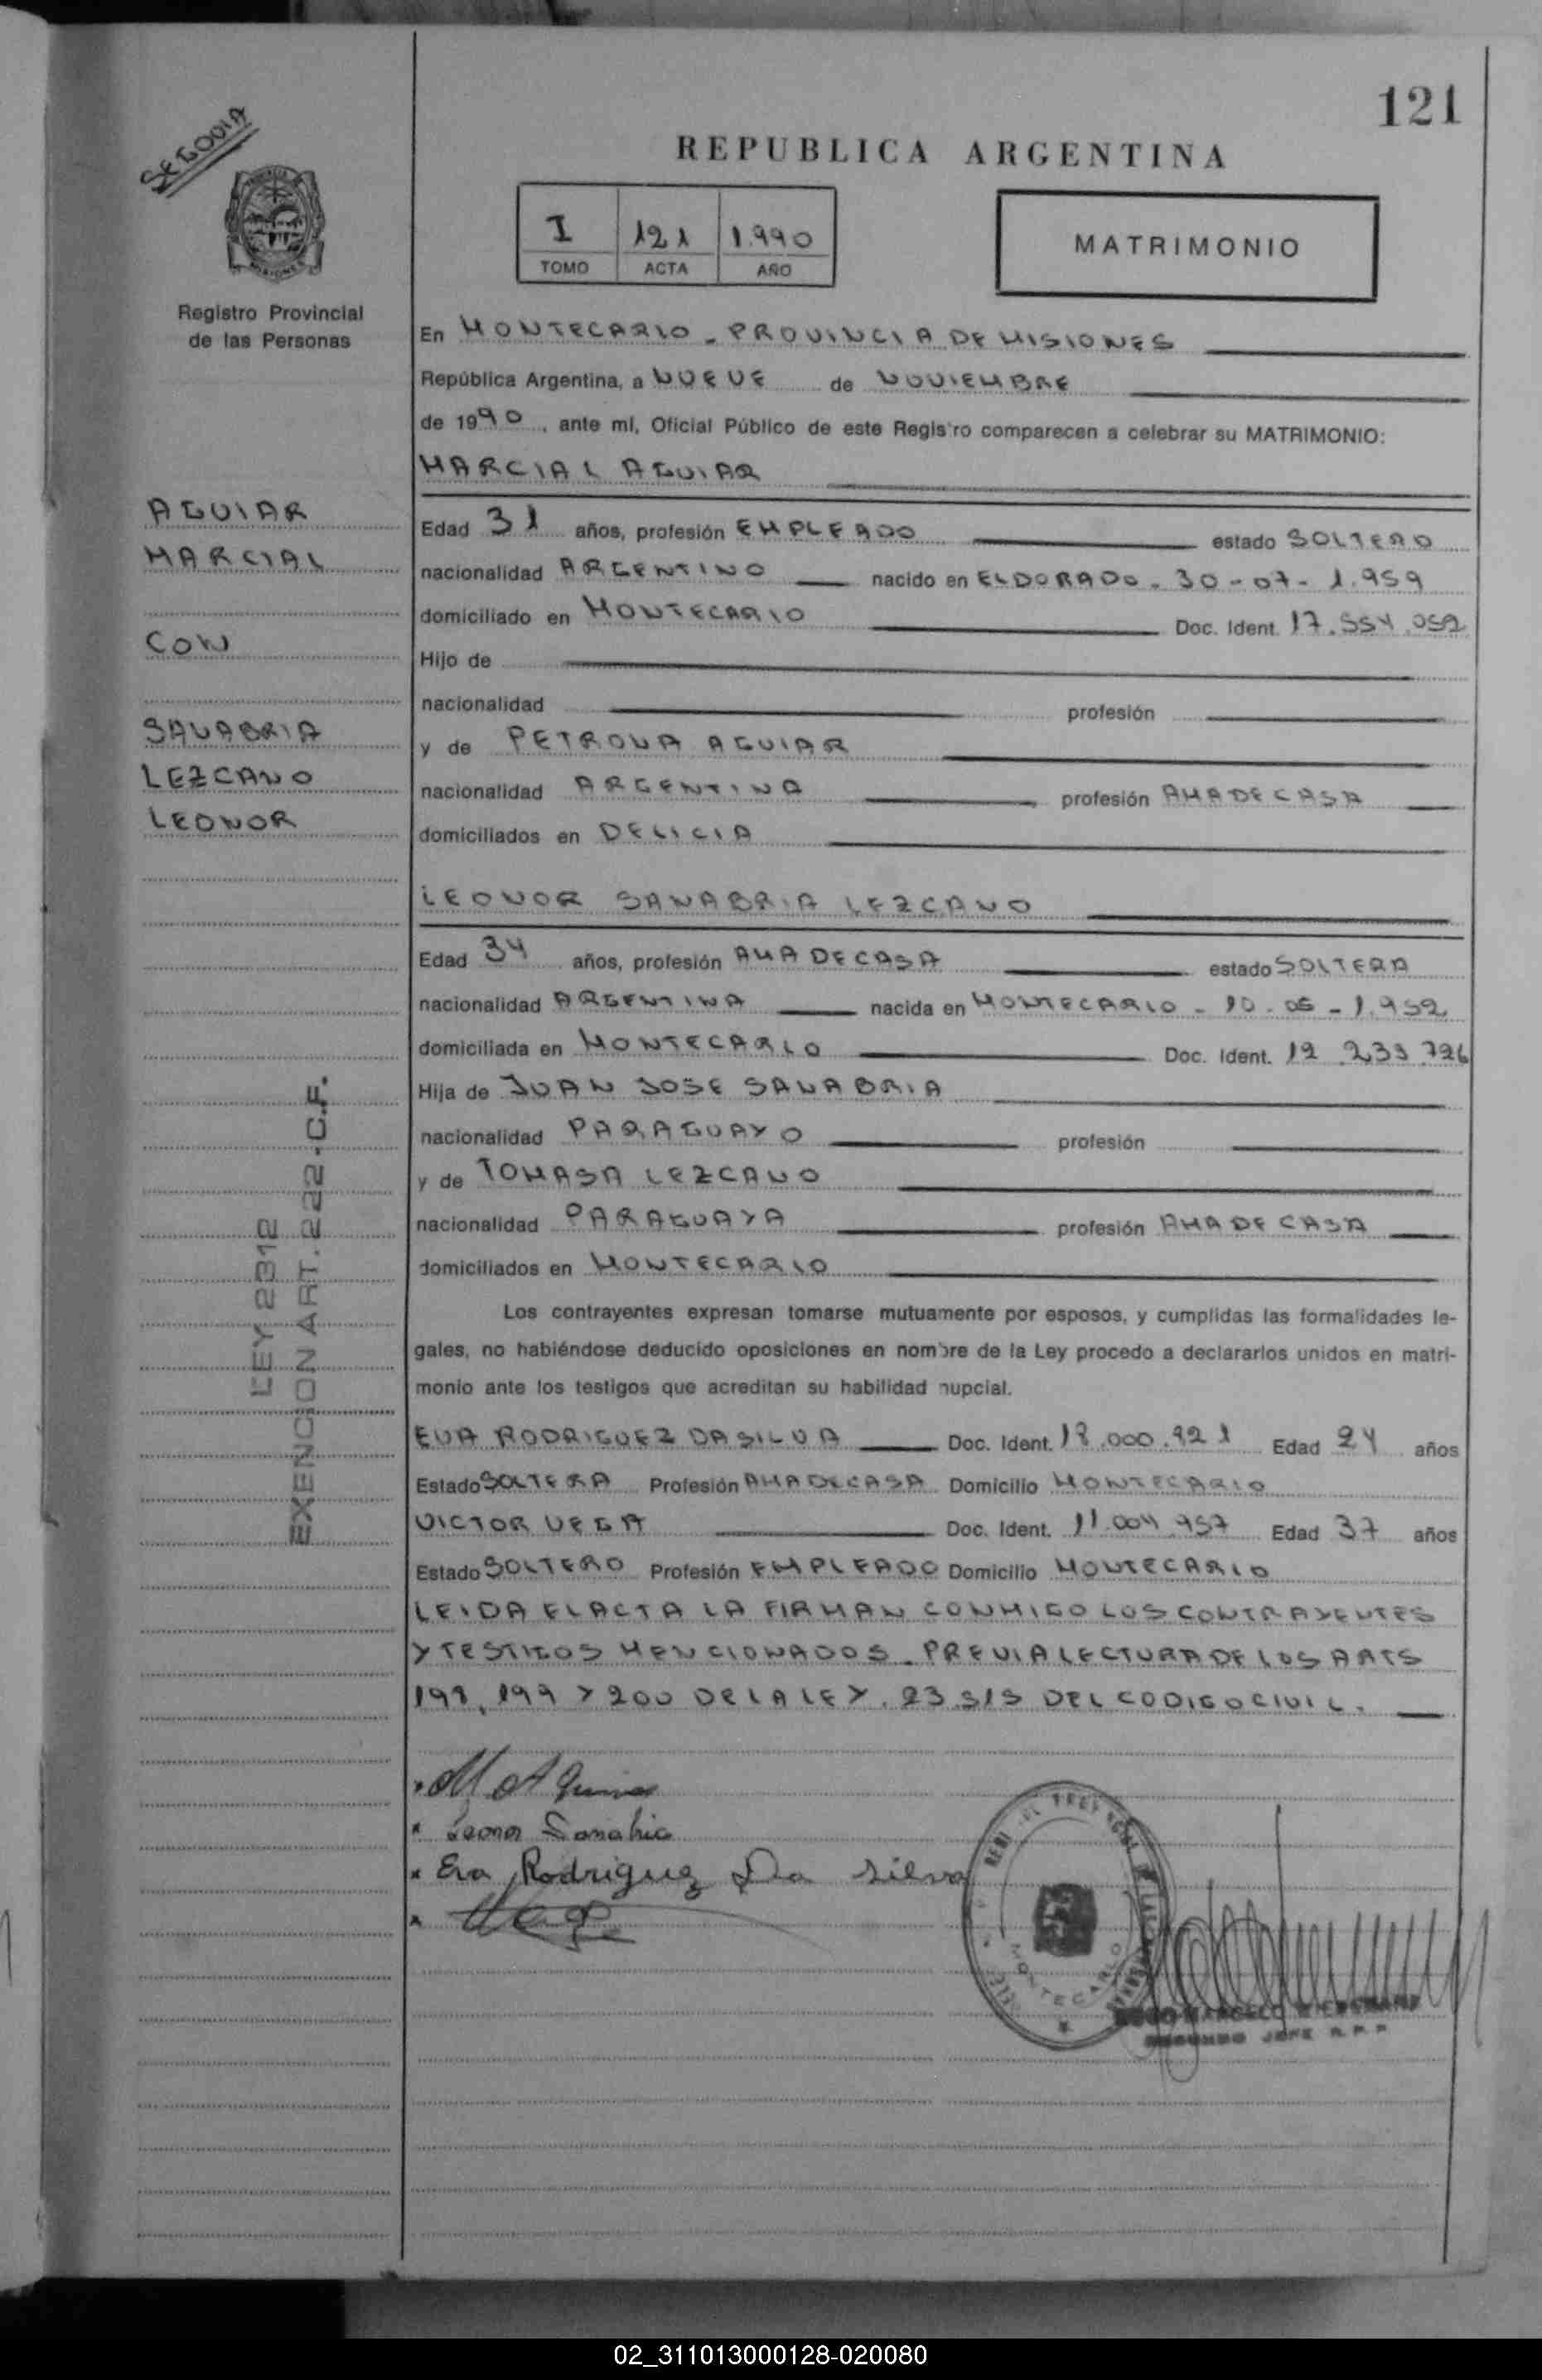 121
SEGOVIA
REPUBLICA ARGENTINA
I 121 1.990
TOMO ACTA AÑO
MATRIMONIO
Registro Provincial
de las Personas
En MONTECARLO - PROVINCIA DE MISIONES
República Argentina, a NUEVE de NOVIEMBRE
de 1990, ante mí, Oficial Público de este Registro comparecen a celebrar su MATRIMONIO:
MARCIAL AGUIAR
AGUIAR
MARCIAL
CON
SANABRIA
LEZCANO
LEONOR
Edad 31 años, profesión EMPLEADO estado SOLTERO
nacionalidad ARGENTINO nacido en ELDORADO - 30 - 07 - 1.959
domiciliado en MONTECARLO Doc. Ident. 17.554.052
Hijo de
nacionalidad profesión
y de PETRONA AGUIAR
nacionalidad ARGENTINA profesión AMA DE CASA
domiciliados en DELICIA
LEONOR SANABRIA LEZCANO
Edad 34 años, profesión AMA DE CASA estado SOLTERA
nacionalidad ARGENTINA nacida en MONTECARLO - 10 - 06 - 1.952
domiciliada en MONTECARLO Doc. Ident. 12.233.726
Hija de JUAN JOSE SANABRIA
nacionalidad PARAGUAYO profesión
y de TOMASA LEZCANO
nacionalidad PARAGUAYA profesión AMA DE CASA
domiciliados en MONTECARLO
LEY 2312
EXENCION ART. 222 - C.F.
Los contrayentes expresan tomarse mutuamente por esposos, y cumplidas las formalidades le-
gales, no habiéndose deducido oposiciones en nombre de la Ley procedo a declararlos unidos en matri-
monio ante los testigos que acreditan su habilidad nupcial.
EVA RODRIGUEZ DA SILVA Doc. Ident. 18.000.921 Edad 24 años
Estado SOLTERA Profesión AMA DE CASA Domicilio MONTECARLO
VICTOR VEGA Doc. Ident. 11.004.957 Edad 37 años
Estado SOLTERO Profesión EMPLEADO Domicilio MONTECARLO
LEIDA EL ACTA LA FIRMAN CONMIGO LOS CONTRAYENTES
Y TESTIGOS MENCIONADOS - PREVIA LECTURA DE LOS ARTS
198, 199 Y 200 DE LA LEY. 23.515 DEL CODIGO CIVIL.
Leonor Sanabria
Eva Rodriguez Da Silva
MONTECARLO
MARCELO
JEFE R.P.P
02_311013000128-020080